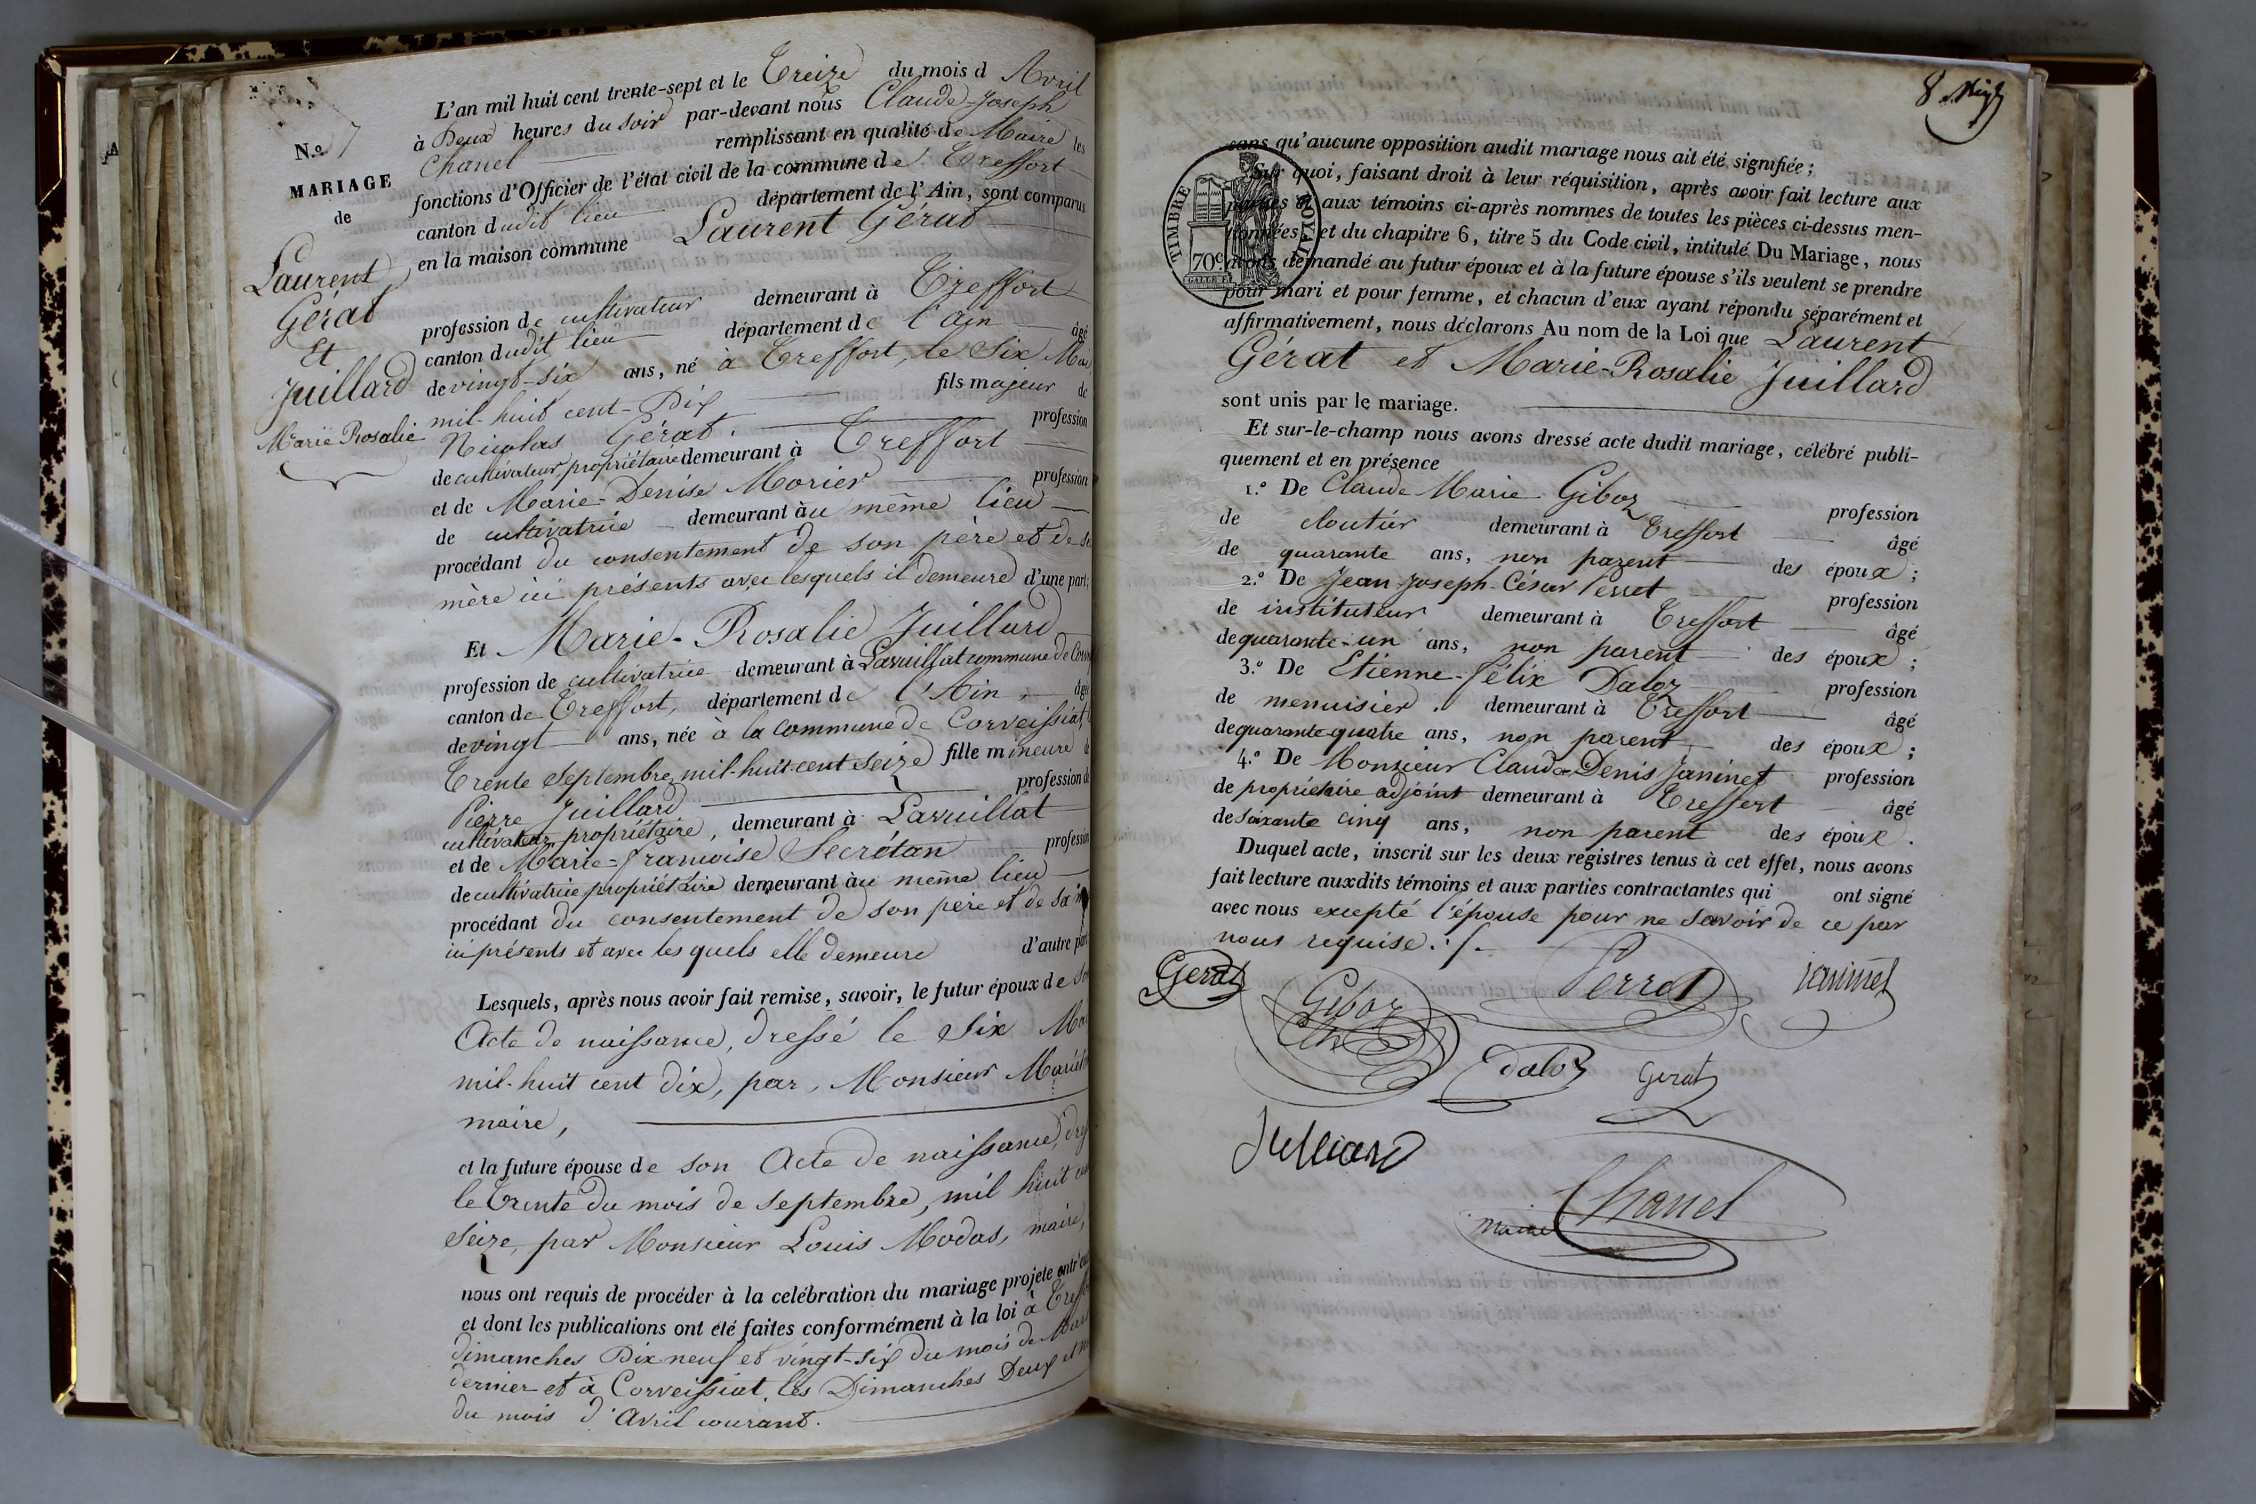 N.º 7
MARIAGE
de
Laurent
Gérat
Et
Juillard
Marie Rosalie
L'an mil huit cent trente-sept et le Treize du mois d Avril
à Deux heures du soir par-devant nous Claude-Joseph
Chanel remplissant en qualité de Maire les
fonctions d'Officier de l'état civil de la commune de Treffort
canton dudit lieu département de l'Ain, sont comparus
en la maison commune Laurent Gérat
profession de cultivateur demeurant à Treffort
canton dudit lieu département de l'ain âgé
de vingt-six ans, né à Treffort, le Six
mil-huit cent-Dix fils majeur de
Nicolas Gérat. profession
de cultivateur propriétaire demeurant à Treffort
et de Marie-Denise Morier profession
de cultivatrice demeurant au même lieu
procédant du consentement de son père et de
mère ici présents avec lesquels il demeure d'une part;
Et Marie-Rosalie Juillard
profession de cultivatrice demeurant à commune de
canton de Treffort, département de l'Ain, âgé
de vingt ans, née à la commune de Corveissiat
Trente Septembre mil-huit-cent Seize fille mineure
Pierre Juillard profession de
cultivateur propriétaire, demeurant à
et de Marie-Françoise Secrétan profession
de cultivatrice propriétaire demeurant au même lieu
procédant du consentement de son père et de sa
ici présents et avec lesquels elle demeure d'autre part
Lesquels, après nous avoir fait remise, savoir, le futur époux de son
Acte de naissance, dressé le Six
mil-huit cent dix, par, Monsieur
maire,
et la future épouse de son Acte de naissance,
le Trente du mois de Septembre, mil huit cent
Seize, par Monsieur Louis Modas, maire,
nous ont requis de procéder à la celébration du mariage projeté entr'eux
et dont les publications ont été faites conformément à la loi à Treffort
dimanches Dix neuf et vingt-six du mois de Mars
dernier et à Corveissiat, les Dimanches Deux et
du mois d'Avril courant.
8.
TIMBRE ROYAL
70c
sans qu'aucune opposition audit mariage nous ait été signifiée;
Sur quoi, faisant droit à leur réquisition, après avoir fait lecture aux
parties et aux témoins ci-après nommes de toutes les pièces ci-dessus men-
tionnées, et du chapitre 6, titre 5 du Code civil, intitulé Du Mariage, nous
avons demandé au futur époux et à la future épouse s'ils veulent se prendre
pour mari et pour femme, et chacun d'eux ayant répondu séparément et
affirmativement, nous déclarons Au nom de la Loi que Laurent
Gérat et Marie-Rosalie Juillard
sont unis par le mariage.
Et sur-le-champ nous avons dressé acte dudit mariage, célébré publi-
quement et en présence
1.º De Claude Marie Giboz profession
de cloutier demeurant à Treffort âgé
de quarante ans, non parent des époux;
2.º De Jean-Joseph-César Perret profession
de instituteur demeurant à Treffort âgé
de quarante-un ans, non parent des époux;
3.º De Etienne-Félix Daloz profession
de menuisier. demeurant à Treffort âgé
de quarante-quatre ans, non parent des époux;
4.º De Monsieur Claude-Denis Janinet profession
de propriétaire adjoint demeurant à Treffort âgé
de soixante cinq ans, non parent des époux.
Duquel acte, inscrit sur les deux registres tenus à cet effet, nous avons
fait lecture auxdits témoins et aux parties contractantes qui ont signé
avec nous excepté l'épouse pour ne savoir de ce par
nous requise./.
Gerat
Giboz
Perret
Janinet
Daloz
Gerat
Julliard
Chanel
maire